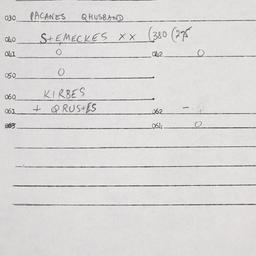 030 PACANES QHUSBAND
040 S+EMECKES XX (380 (275
041 0 042 0
050 0
060 KIRBES
061 + QRUSTES 062 -
064 0